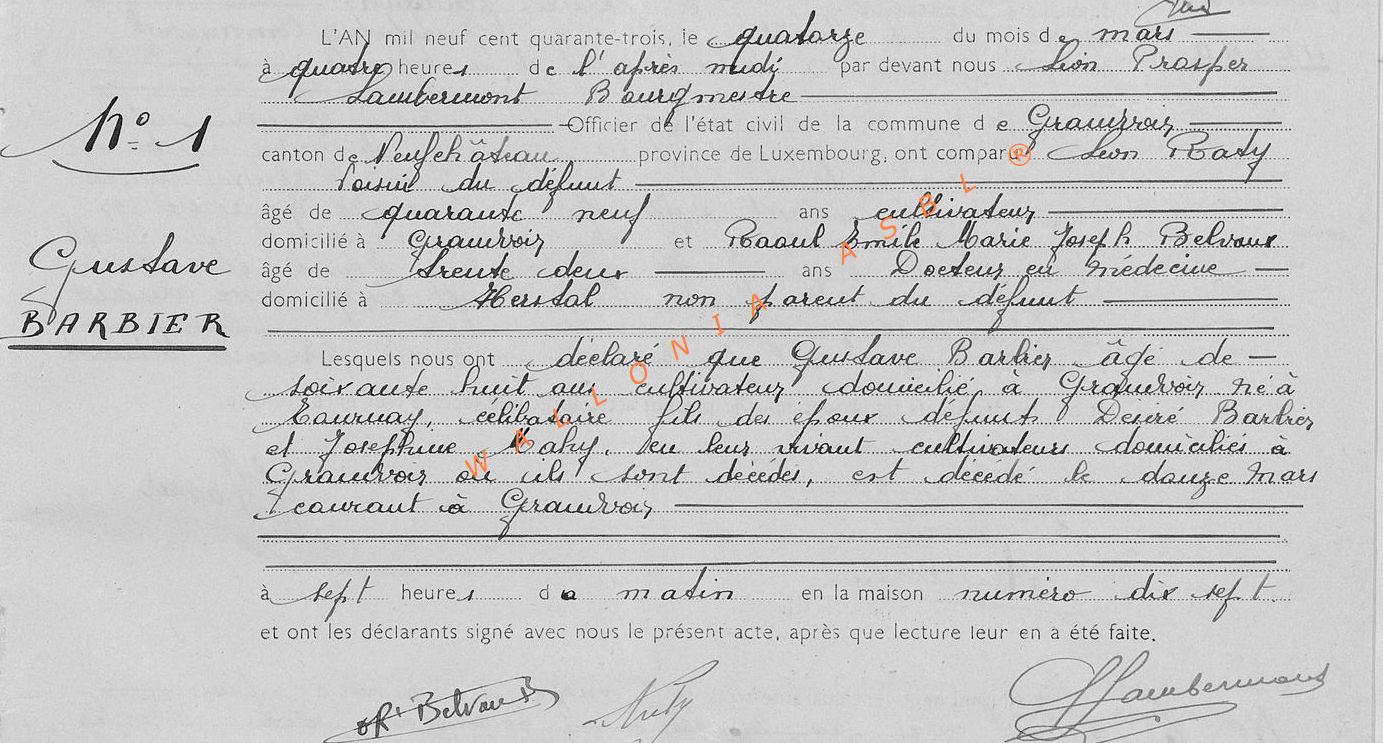 L'AN mil neuf cent quarante-trois, le quatorze du mois de mars
à quatre heures de l'après midi par devant nous Léon Prosper
Lambermont Bourgmestre
Officier de l'état civil de la commune de Grandvoir
canton de Neufchâteau province de Luxembourg, ont comparu Léon Raty
voisin du défunt
N° 1
âgé de quarante neuf ans cultivateur
domicilié à Grandvoir et Raoul Emile Marie Joseph Belvaux
Gustave
BARBIER
âgé de trente deux ans Docteur en médecine
domicilié à Herstal non parent du défunt
Lesquels nous ont déclaré que Gustave Barbier âgé de
soixante huit ans cultivateur domicilié à Grandvoir né à
Tournay, célibataire fils des époux défunts Desiré Barbier
et Josephine Mahy, en leur vivant cultivateurs domiciliés à
Grandvoir où ils sont décédés, est décédé le douze mars
courant à Grandvoir
à sept heures du matin en la maison numéro dix sept.
et ont les déclarants signé avec nous le présent acte, après que lecture leur en a été faite.
Dr Belvaux Lambermont
WALLONIA ASBL ®